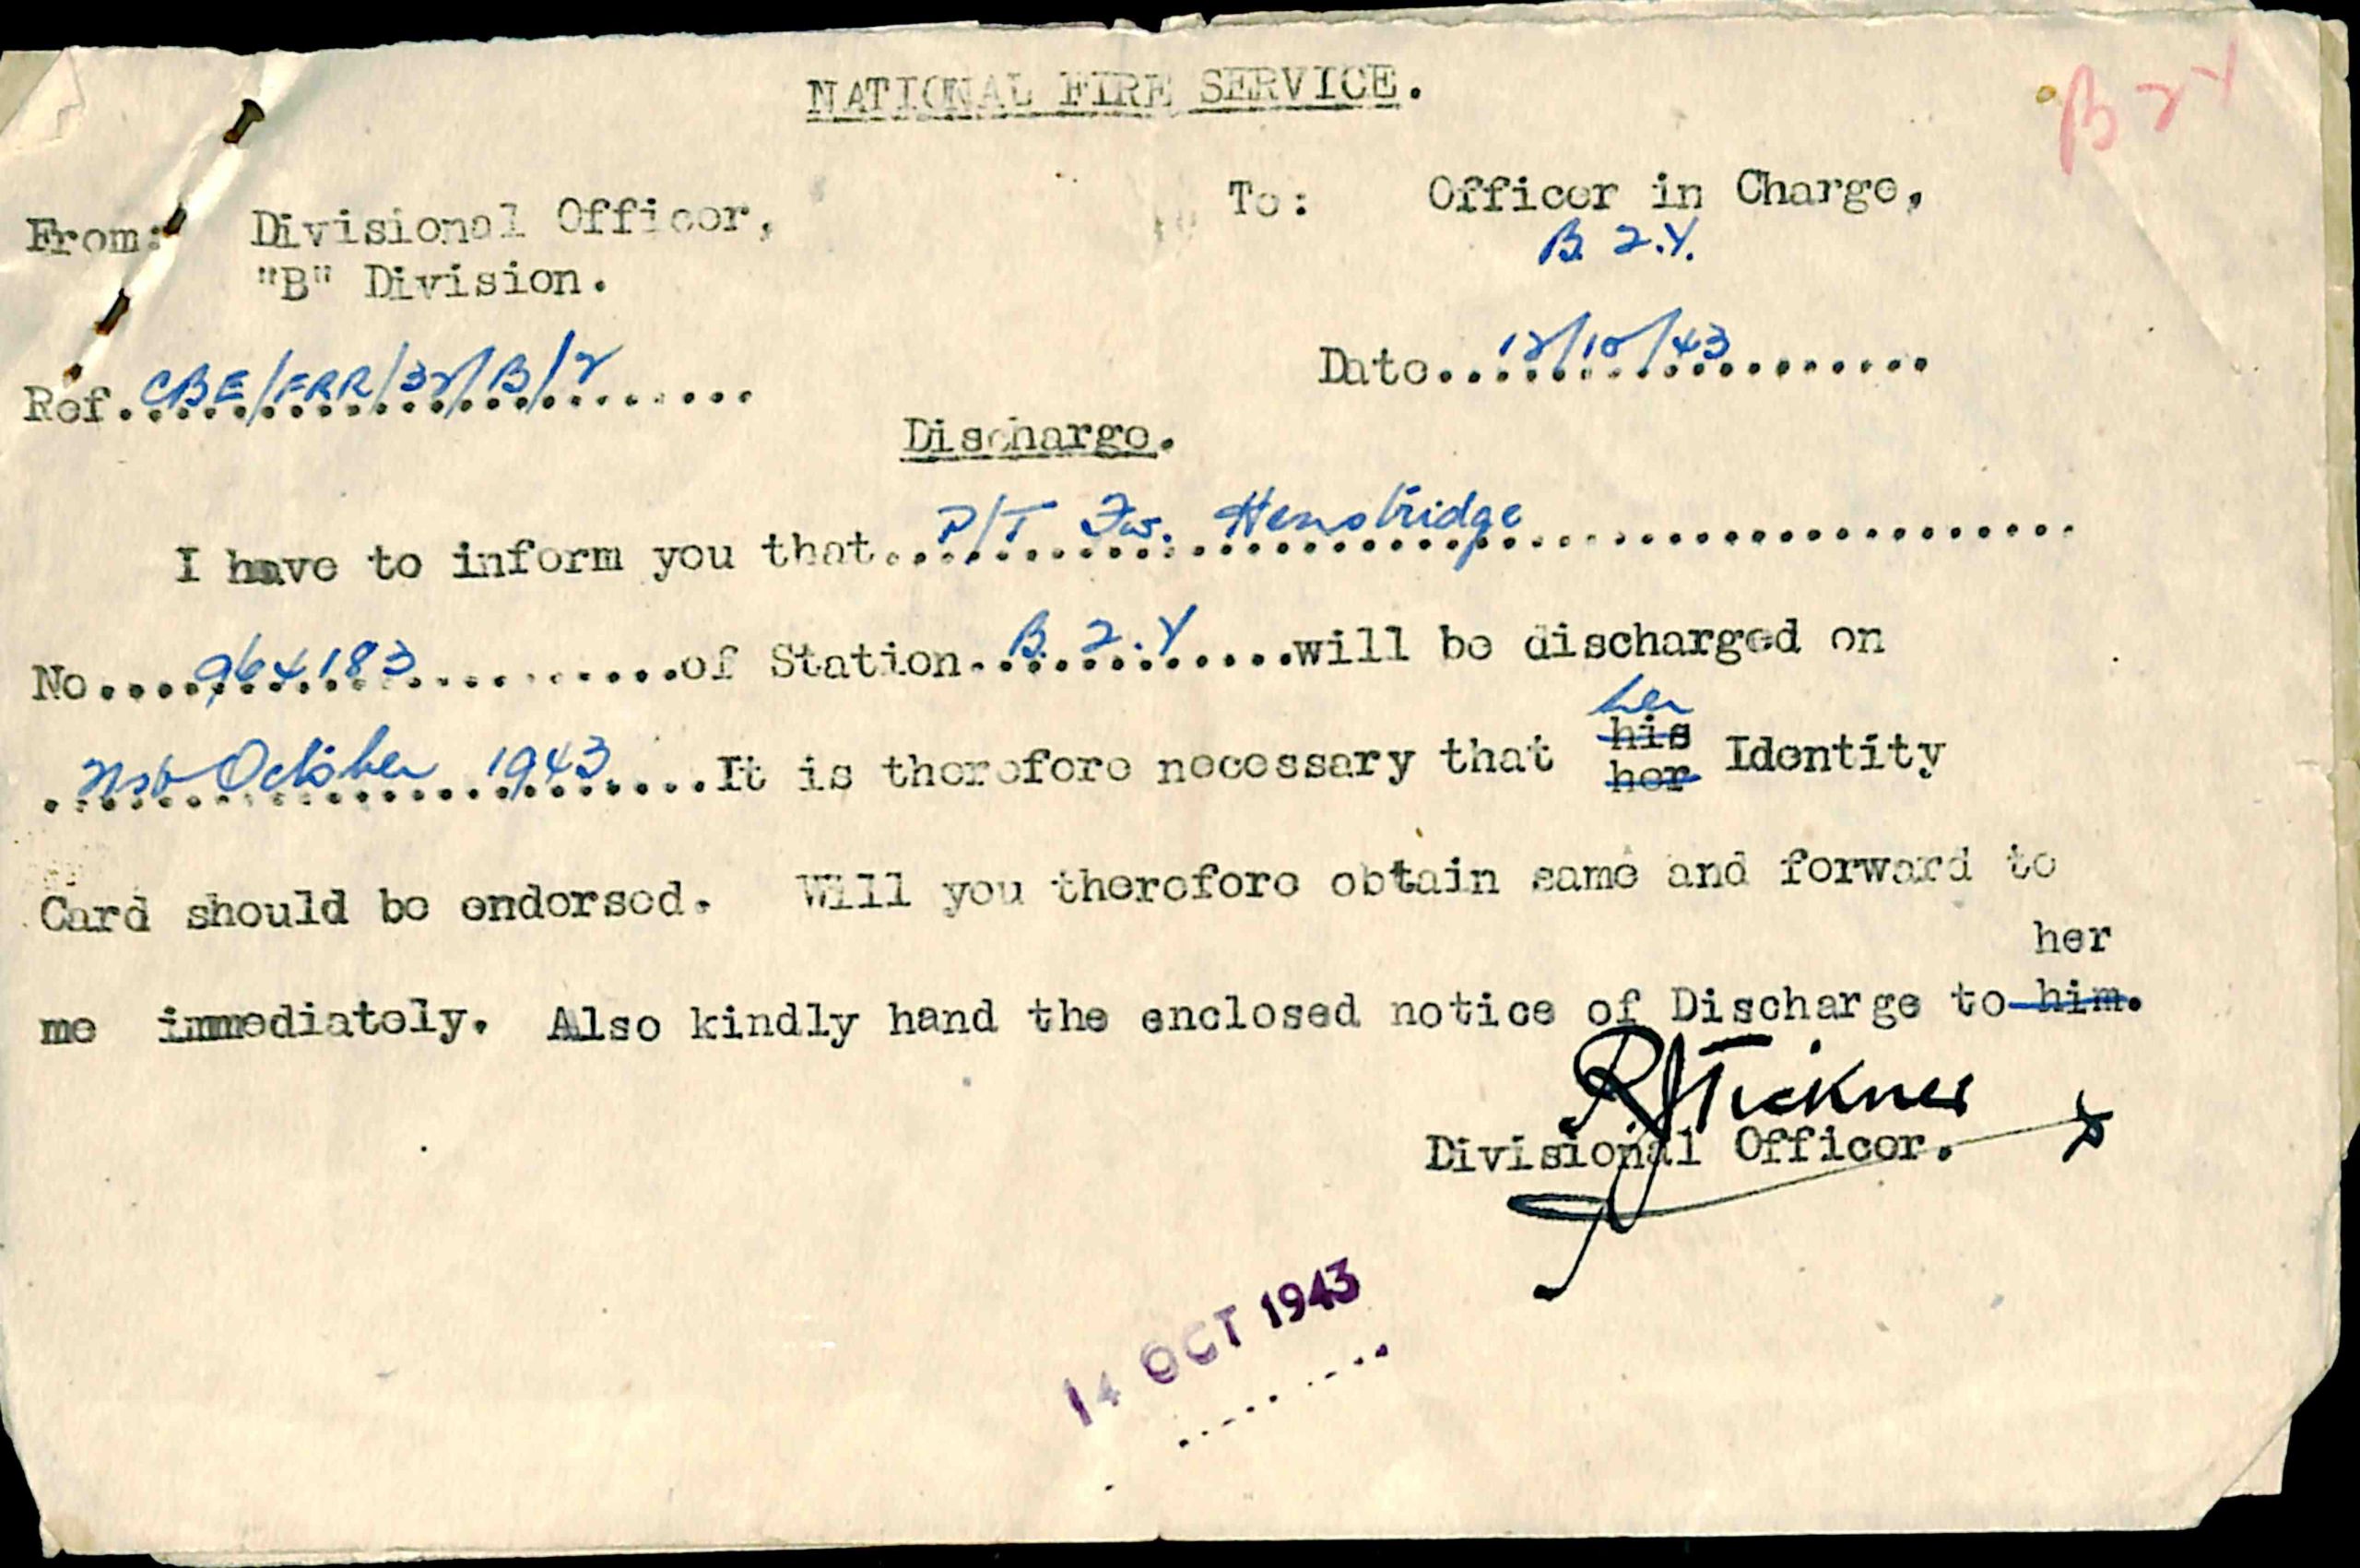 NATIONAL FIRE SERVICE.
B 2 Y
From: Divisional Officer,
"B" Division.
To: Officer in Charge,
B. 2.Y.
Ref. CBE/FRR/32/B/2
Date 12/10/43
Discharge.
I have to inform you that P/T Fw. Henstridge
No. 964183 of Station B. 2.Y will be discharged on
October 1943. It is therefore necessary that her his her Identity
Card should be endorsed. Will you therefore obtain same and forward to
her
me immediately. Also kindly hand the enclosed notice of Discharge to him.
R J Tickner
Divisional Officer.
14 OCT 1943